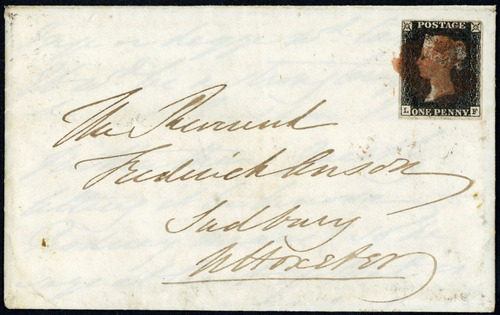 POSTAGE
ONE PENNY
The Reverend
Frederick Anson
Sudbury
Uttoxeter